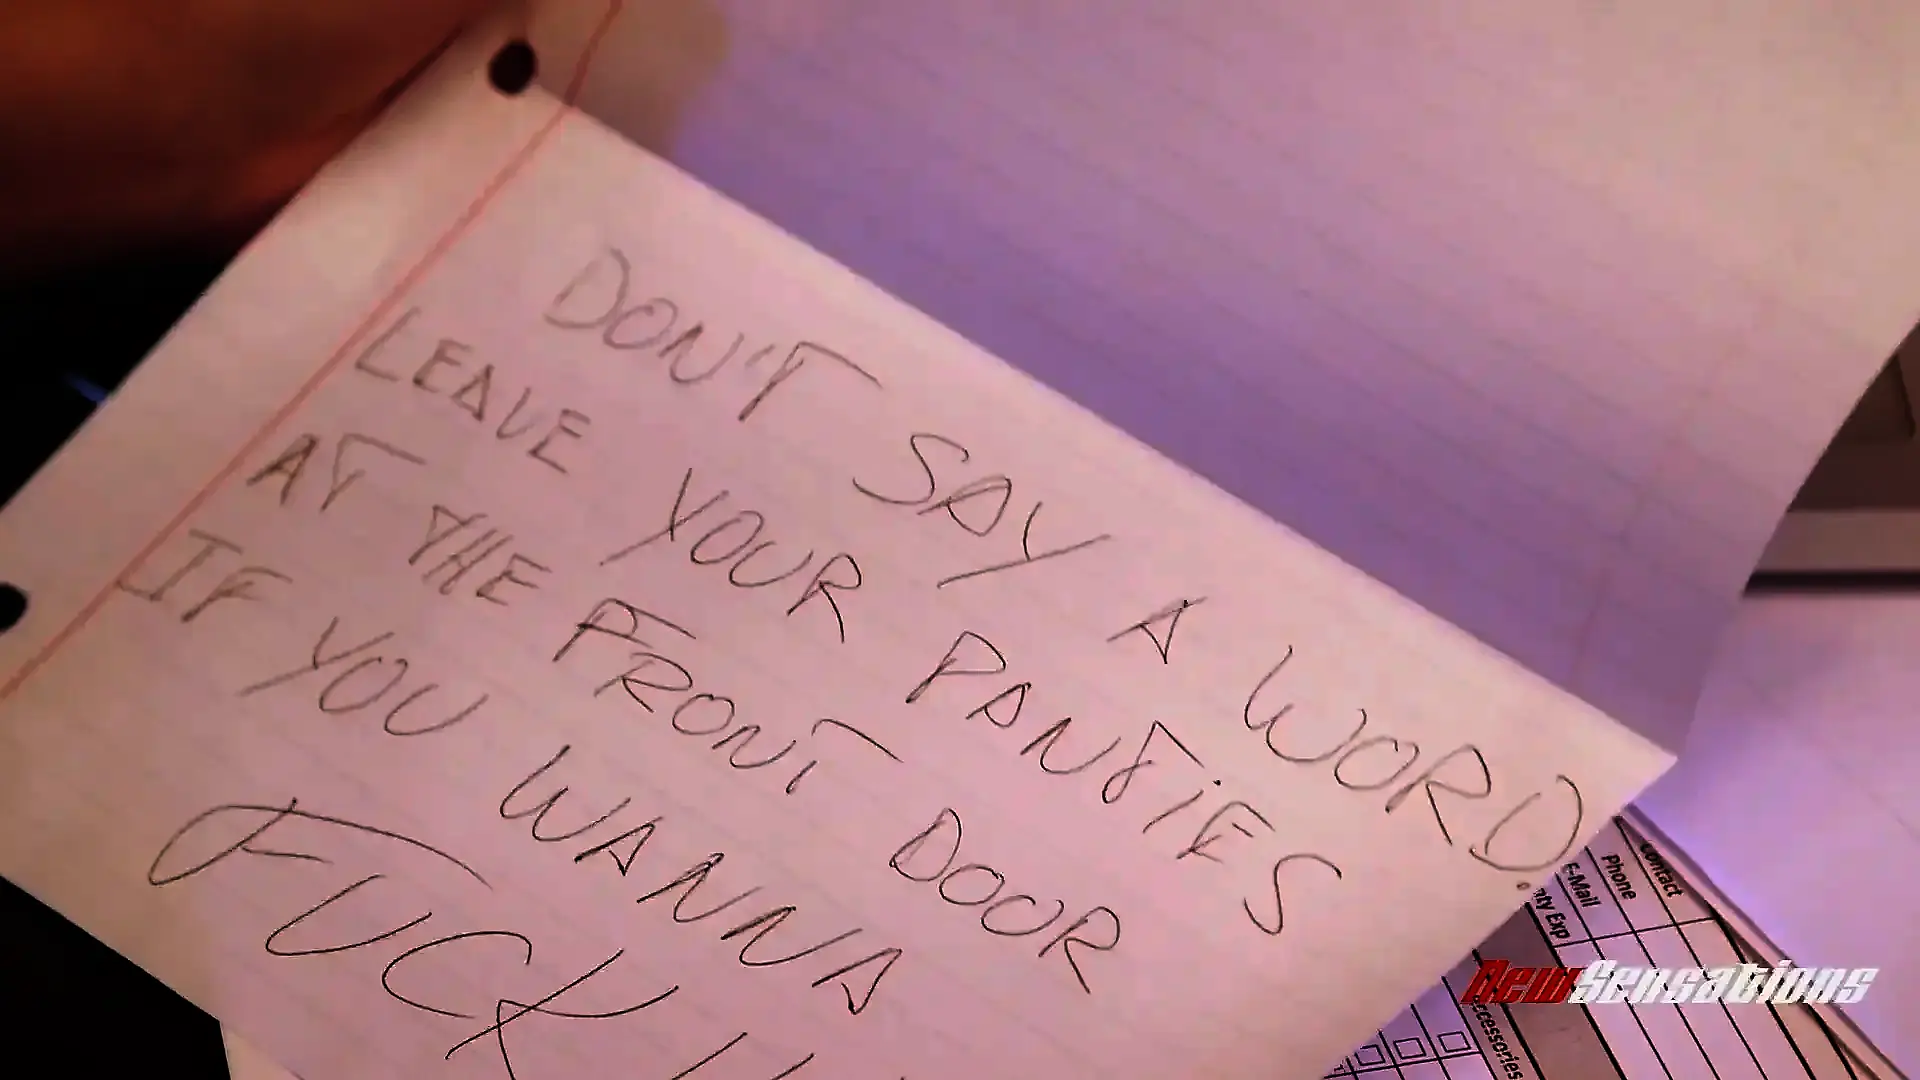 DON'T SAY A WORD.
LEAVE YOUR PANTIES
AT THE FRONT DOOR
IF YOU WANNA
FUCK
Contact
Phone
E-Mail
NewSensations